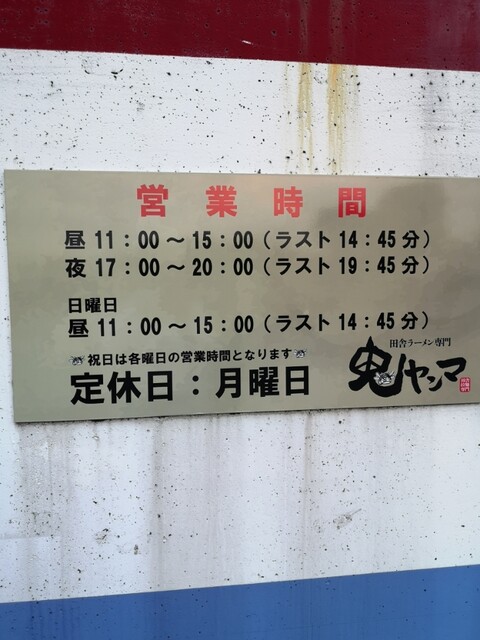 営業時間
昼 11：00～15：00（ラスト14：45分）
夜 17：00～20：00（ラスト19：45分）
日曜日
昼 11：00～15：00（ラスト14：45分）
祝日は各曜日の営業時間となります
定休日：月曜日
田舎ラーメン専門
鬼ヤンマ